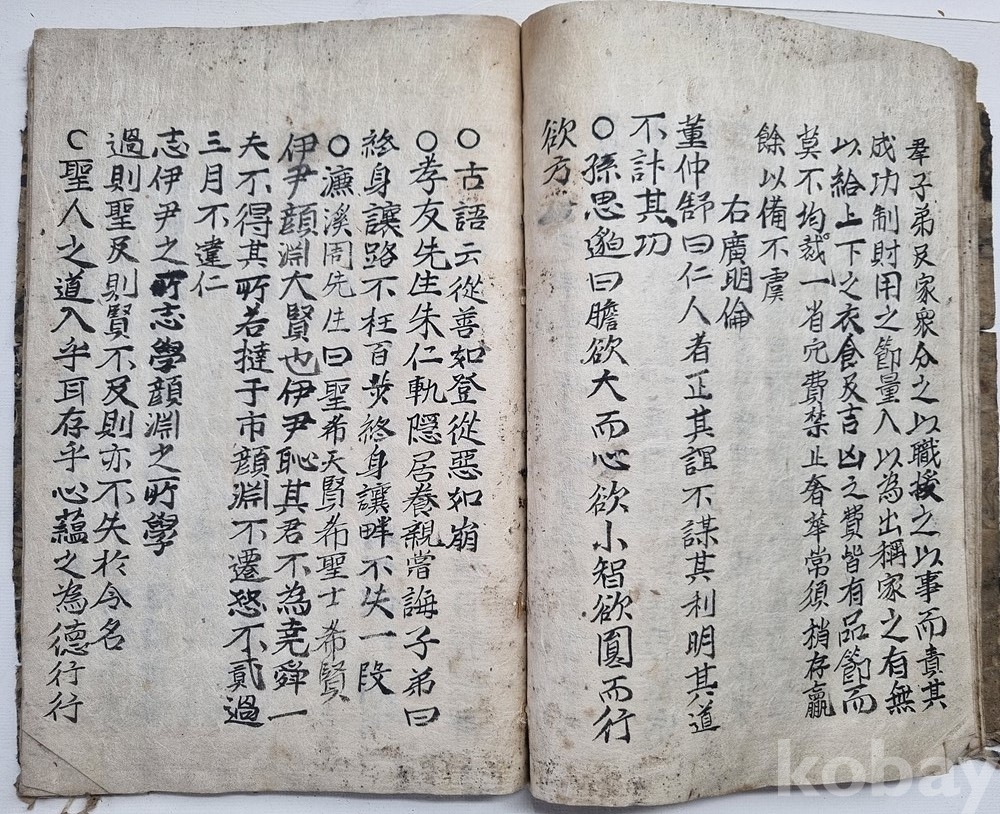 羣子弟及家衆分之以職授之以事而責其
成功制財用之節量入以為出稱家之有無
以給上下之衣食及吉凶之費皆有品節而
莫不均㦲一省冗費禁止奢華常須稍存贏
餘以備不虞
右廣明倫
董仲舒曰仁人者正其誼不謀其利明其道
不計其功
○孫思邈曰膽欲大而心欲小智欲圓而行
欲方
○古語云從善如登從惡如崩
○孝友先生朱仁軌隱居養親嘗誨子弟曰
終身讓路不枉百步終身讓畔不失一段
○濂溪周先生曰聖希天賢希聖士希賢
伊尹顔淵大賢也伊尹恥其君不為堯舜一
夫不得其所若撻于市顔淵不遷怒不貳過
三月不違仁
志伊尹之所志學顔淵之所學
過則聖及則賢不及則亦不失於令名
○聖人之道入乎耳存乎心蘊之為德行行
kobay